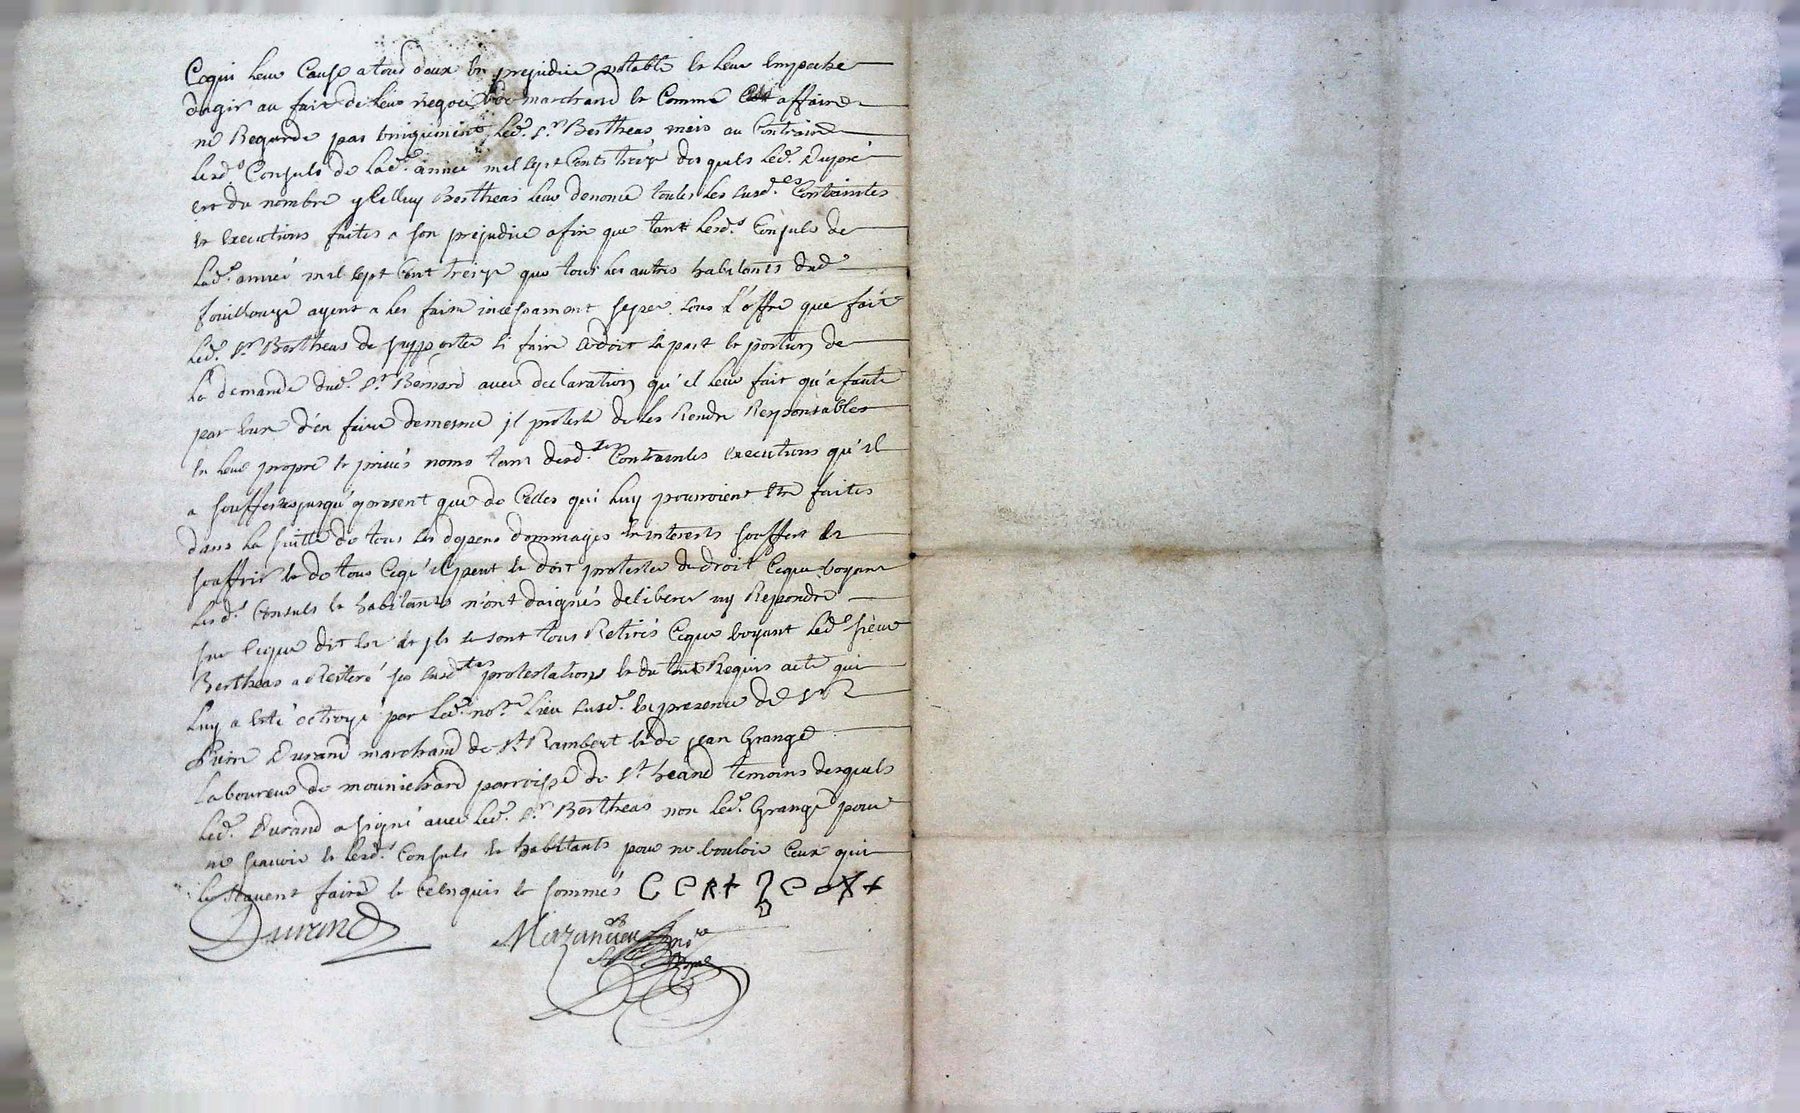 Cequi leur Cause a tous deux un prejudice notable et leur Empeche
dagir au fait de leur negoce de marchand et Comme affaire
ne Regarde pas Uniquement led.t S.r Bertheas mais au Contraire
lesd.s Consuls de lad.e année mil sept Cents treize desquels led.t Dupré
est du nombre Bertheas leur denonce toutes les susd.es Contraintes
et Executions faites a son prejudice afin que tant lesd.s Consuls de
lad.e année mil sept Cent treize que tous les autres habitants dud.t
fouillouze ayent a les faire incessament Cesser sous l'offre que fait
led.t S.r Bertheas de supporter si faire Cedoit sa part et portion de
la demande dud.t S.r Bernard avec declaration qu'il leur fait qu'a faute
par Eux d'en faire demesme il proteste de les Rendre Responsables
En leur propre et privés noms tant desd.tes Contraintes executions qu'il
a souffertes jusqu'apresent que de Celles qui luy pourroient Etre faites
dans la suitte de tous les depens dommages Et interests souffert Et
souffrir et de tous Cequ'il peut et doit protester de droit Ceque voyant
lesd.s Consuls et habitants n'ont daignés deliberer ny Repondre
sur Ceque dit Est et ils se sont tous Retirés Ceque voyant led.t sieur
Bertheas a Reiteré ses susd.tes protestations et du tout Requis acte qui
luy a Esté octroyé par led.t no.re lieu susd.t En presence de S.r
Pierre Durand marchand de S.t Rambert et de jean Grange
laboureur de mounichard parroisse de S.t heand temoins desquels
led.t Durand a signé avec led.t S.r Bertheas non led.t Grange pour
ne scavoir et lesd.s Consuls et habittants pour ne vouloir Ceux qui
le scavent faire et de Cenquis et sommés
Durand Mazandieu no.re